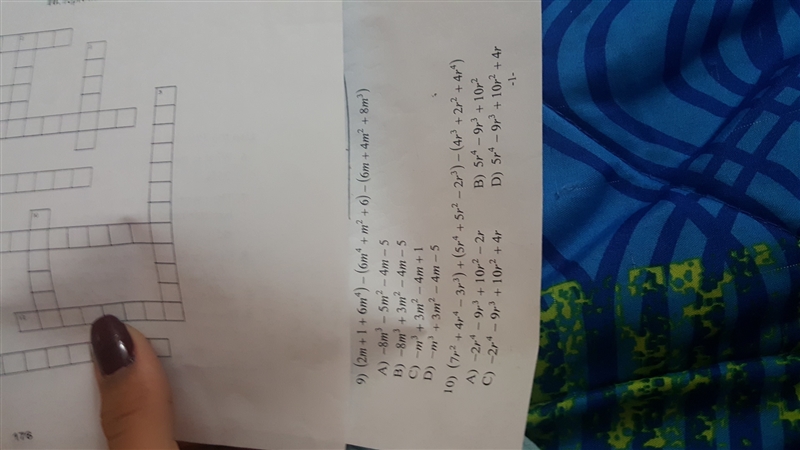 178
9) (2m + 1 + 6m⁴) − (6m⁴ + m² + 6) − (6m + 4m² + 8m³)
A) −8m³ − 5m² − 4m − 5
B) −8m³ + 3m² − 4m − 5
C) −m³ + 3m² − 4m + 1
D) −m³ + 3m² − 4m − 5
10) (7r² + 4r⁴ − 3r³) + (5r⁴ + 5r² − 2r³) − (4r³ + 2r² + 4r⁴)
A) −2r⁴ − 9r³ + 10r² − 2r B) 5r⁴ − 9r³ + 10r²
C) −2r⁴ − 9r³ + 10r² + 4r D) 5r⁴ − 9r³ + 10r² + 4r
-1-